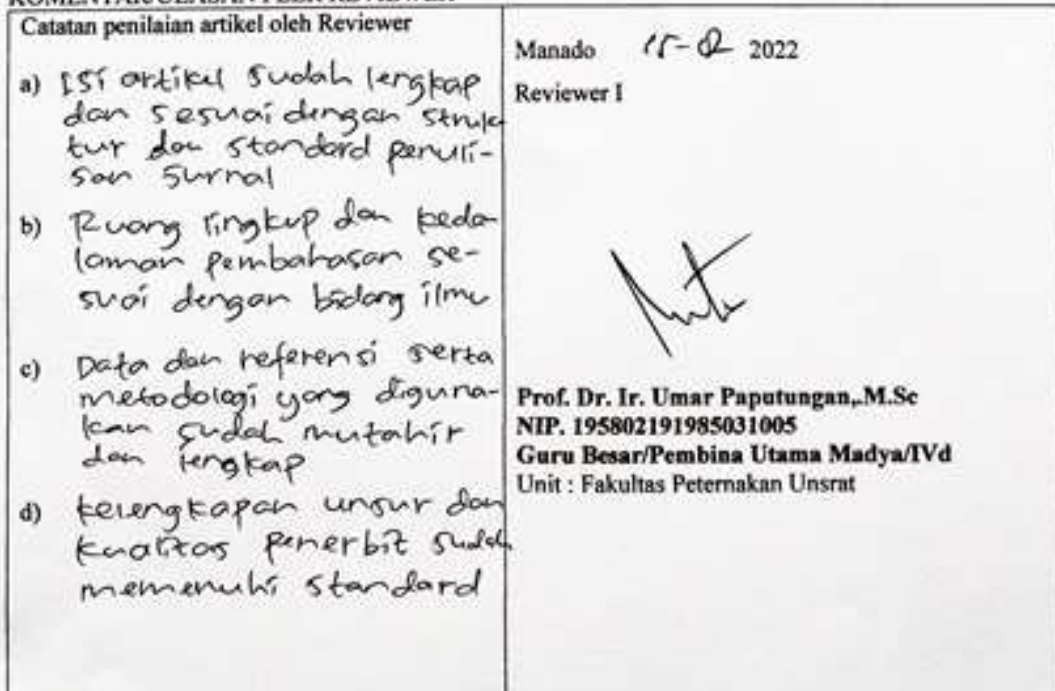 KOMENTAR/ULASAN PEER REVIEWER
Catatan penilaian artikel oleh Reviewer
a) Isi artikel sudah lengkap
dan sesuai dengan struk
tur dan standard penuli-
san Jurnal
b) Ruang lingkup dan keda
laman pembahasan se-
suai dengan bidang ilmu
c) Data dan referensi serta
metodologi yang diguna-
kan sudah mutahir
dan lengkap
d) kelengkapan unsur dan
kualitas penerbit sudah
memenuhi standard
Manado 15-02 2022
Reviewer I
Prof. Dr. Ir. Umar Paputungan,.M.Sc
NIP. 195802191985031005
Guru Besar/Pembina Utama Madya/IVd
Unit : Fakultas Peternakan Unsrat